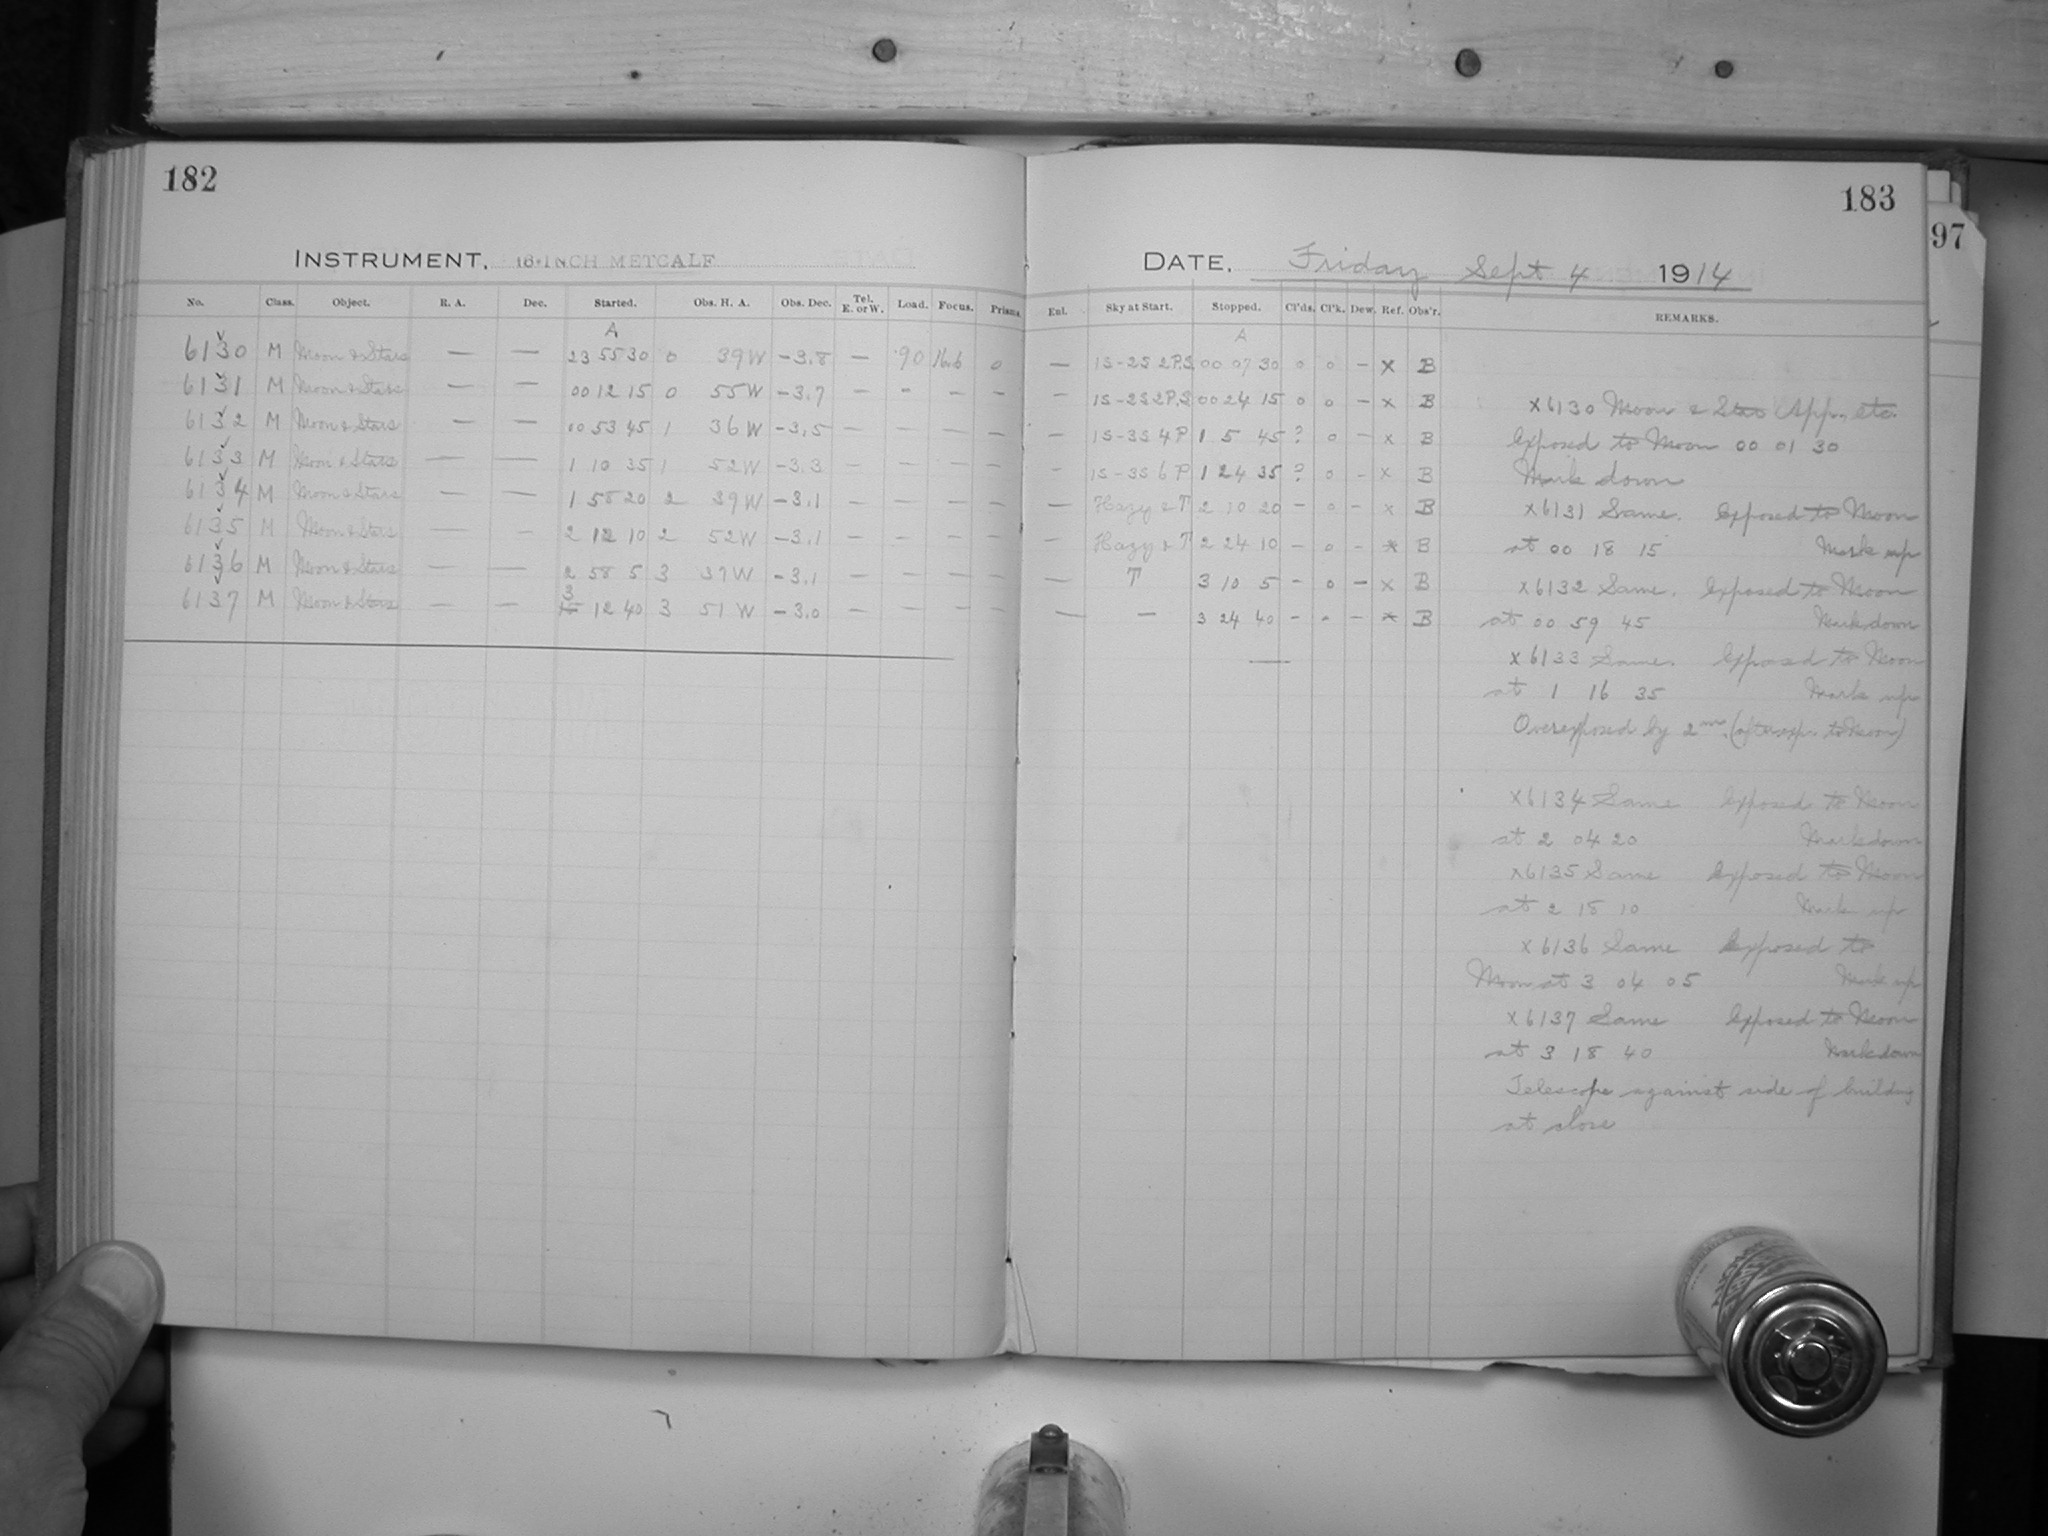 182
INSTRUMENT, 16-INCH METCALF
No. Class. Object. R. A. Dec. Started. Obs. H. A. Obs. Dec. Tel. E. or W. Load. Focus. Prisms.
A
6130 M Moon & Stars — — 23 55 30 0 39 W -3.8 — 90 16.6 0
6131 M Moon & Stars — — 00 12 15 0 55 W -3.7 — - — —
6132 M Moon & Stars — — 00 53 45 1 36 W -3.5 — — — —
6133 M Moon & Stars — — 1 10 35 1 52 W -3.3 — — — —
6134 M Moon & Stars — — 1 58 20 2 39 W -3.1 — — — —
6135 M Moon & Stars — — 2 12 10 2 52 W -3.1 — — — —
6136 M Moon & Stars — — 2 58 5 3 37 W -3.1 — — — —
6137 M Moon & Stars — — 3 12 40 3 51 W -3.0 — — — —
183
97
DATE, Friday Sept 4 1914
Enl. Sky at Start. Stopped. Cl'ds. Cl'k. Dew. Ref. Obs'r. REMARKS.
A
— 1S-2S 2P.S 00 07 30 0 0 – x B
— 1S-2S 2P.S 00 24 15 0 0 – x B
— 1S-3S 4P 1 5 45 ? 0 – x B
- 1S-3S 6P 1 24 35 ? 0 – x B
— Hazy & T 2 10 20 – 0 – x B
— Hazy & T 2 24 10 – 0 – x B
— T 3 10 5 – 0 – x B
— — 3 24 40 – - – x B
x6130 Moon & Stars App., etc.
Exposed to Moon 00 01 30
Mark down
x6131 Same. Exposed to Moon
at 00 18 15 Mark up
x6132 Same. Exposed to Moon
at 00 59 45 Mark down
x6133 Same. Exposed to Moon
at 1 16 35 Mark up
Overexposed by 2m. (after exp. to Moon)
x6134 Same Exposed to Moon
at 2 04 20 Mark down
x6135 Same Exposed to Moon
at 2 18 10 Mark up
x6136 Same Exposed to
Moon at 3 04 05 Mark up
x6137 Same Exposed to Moon
at 3 18 40 Mark down
Telescope against side of building
at close